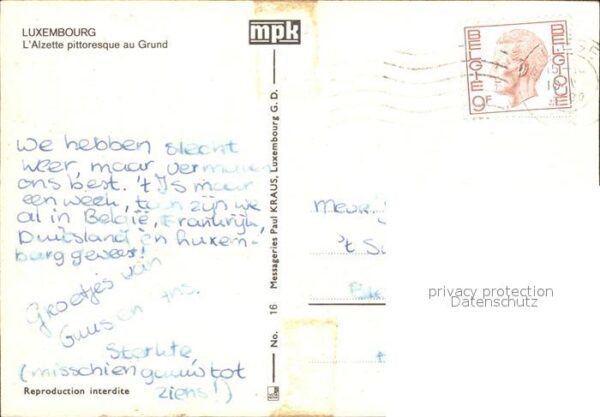 LUXEMBOURG
L'Alzette pittoresque au Grund
mpk
BELGIE
BELGIQUE
9F
We hebben slecht
weer, maar vermaken
ons best. 't Is maar
een week, toch zijn we
al in België, Frankrijk,
Duitsland en Luxem-
burg geweest!
Groetjes van
Guus en
Sterkte
(misschien gauw tot
ziens!)
Reproduction interdite
No. 16 Messageries Paul KRAUS, Luxembourg G. D.
't
privacy protection
Datenschutz